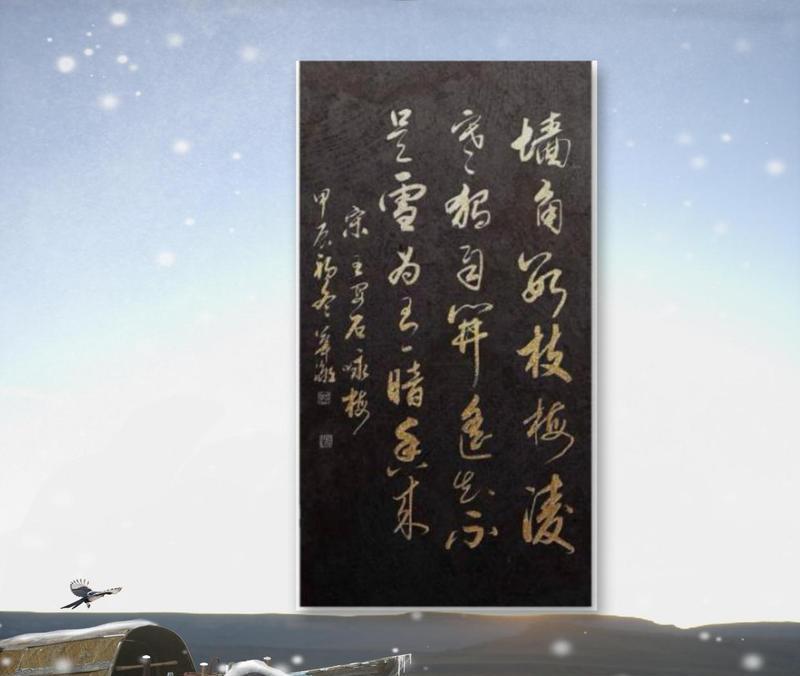 墻角數枝梅凌
寒獨自開遥知不
是雪为有暗香来
宋王安石咏梅
甲辰初冬